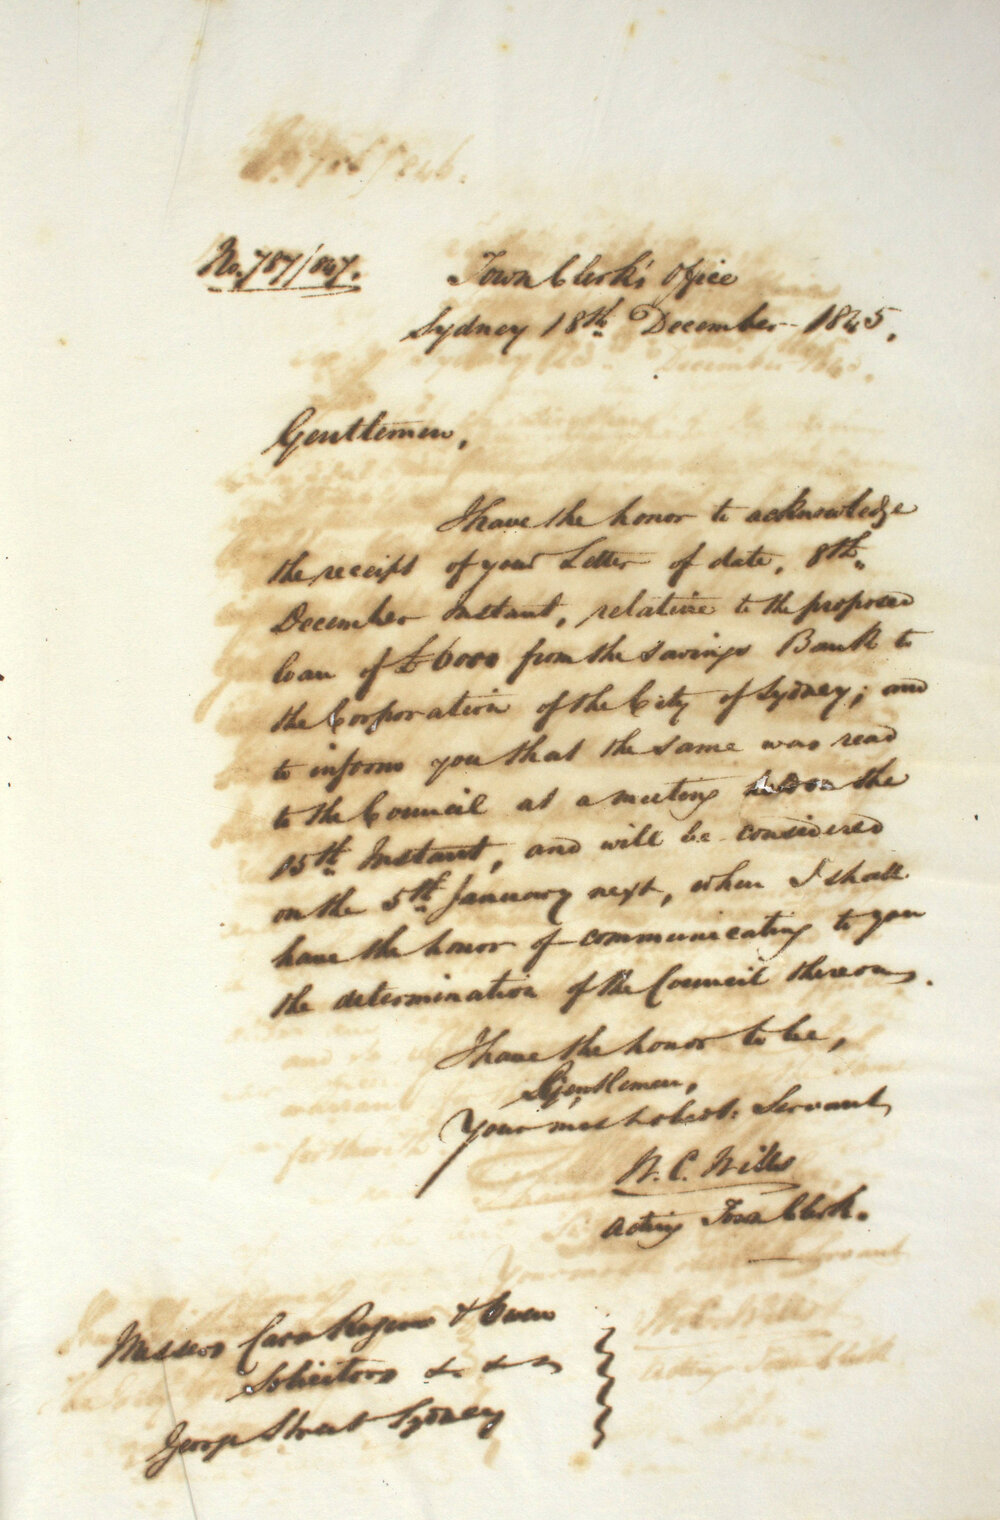 No. 787/847.
Town Clerk's Office
Sydney 18th December 1845.
Gentlemen,
I have the honor to acknowledge
the receipt of your Letter of date, 8th
December instant, relative to the proposed
loan of £6000 from the Savings Bank to
the Corporation of the City of Sydney; and
to inform you that the same was read
to the Council at a meeting held on the
15th Instant, and will be considered
on the 5th January next, when I shall
have the honor of communicating to you
the determination of the Council thereon.
I have the honor to be,
Gentlemen,
Your most obedt. Servant
W. C. Wills
Acting Town Clerk.
Messrs Carr Rogers & Owen
Solicitors &c &c &c
George Street Sydney